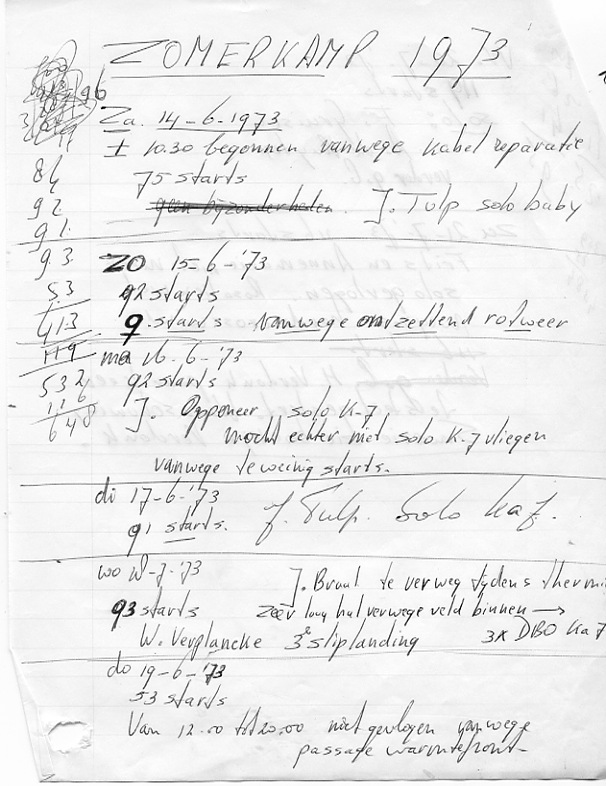 ZOMERKAMP 1973
96
Za. 14-6-1973
± 10.30 begonnen vanwege kabel reparatie
84
75 starts
92
geen bijzonderheden. J. Tulp solo baby
91
93
ZO 15-6-'73
53
92 starts
413
9 starts vanwege ontzettend rotweer
119
ma 16-6-'73
532
92 starts
116
J. Opponeer solo K-7
648
mocht echter niet solo K-7 vliegen
vanwege te weinig starts.
di 17-6-'73
91 starts. J. Tulp. Solo Ka 7.
wo -7-'73
J. Braal te ver weg tijdens thermi
93 starts zeer laag halverwege veld binnen →
W. Verplancke 3e sliplanding 3x DBO Ka 7
do 19-6-'73
53 starts
Van 12.00 tot 20.00 niet gevlogen vanwege
passage warmtefront